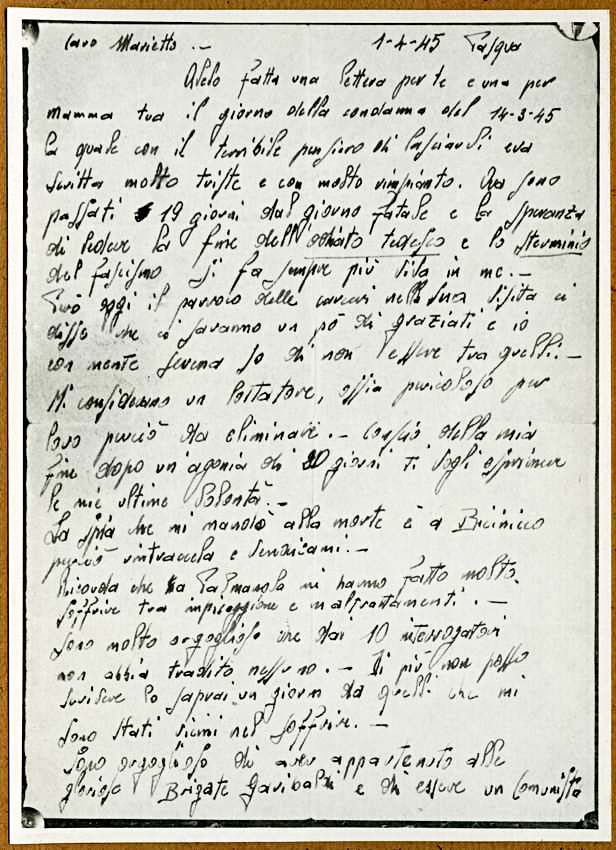 Caro Marietto .- 1-4-45 Pasqua
Avevo fatta una lettera per te e una per
mamma tua il giorno della condanna del 14-3-45
la quale con il terribile pensiero di lasciarvi era
scritta molto triste e con molto rimpianto. Ora sono
passati 19 giorni dal giorno fatale e la speranza
di vedere la fine dell'odiato tedesco e lo sterminio
del fascismo si fa sempre più viva in me.-
Però oggi il parroco delle carceri nella sua visita ci
disse che ci saranno un pò di graziati e io
con mente serena so di non essere tra quelli.-
Mi considerano un portatore, ossia pericoloso per
loro perciò da eliminare.- Conscio della mia
fine dopo un'agonia di 20 giorni ti vogli esprimere
le mie ultime volontà.-
La spia che mi mandò alla morte è a Bicinicco
perciò rintracciela e vendicami.-
Ricorda che a Palmanova mi hanno fatto molto
soffrire tra impiccagione e maltrattamenti.-
Sono molto orgoglioso che dai 10 interrogatori
non abbia tradito nessuno.- Di più non posso
scrivere lo saprai un giorno da quelli che mi
sono stati vicini nel soffrire.-
Sono orgoglioso di aver appartenuto alle
gloriose Brigate Garibaldi e di essere un Comunista